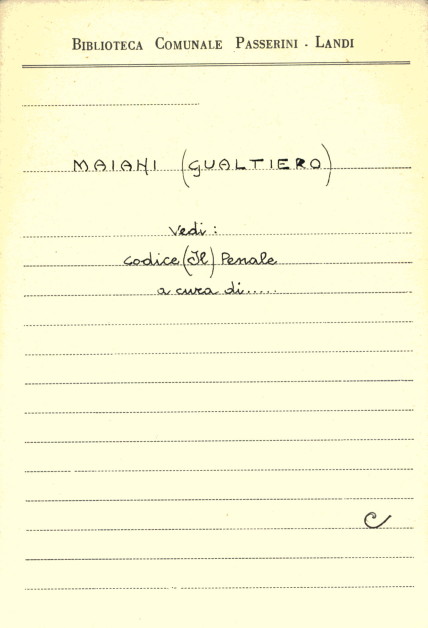 BIBLIOTECA COMUNALE PASSERINI - LANDI
MAIANI (GUALTIERO)
Vedi:
Codice (Il) Penale
a cura di.....
C